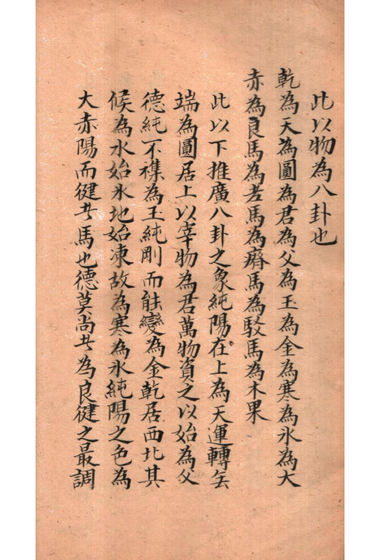 此以物為八卦也
乾為天為圜為君為父為玉為金為寒為氷為大
赤為良馬為老馬為瘠馬為駁馬為木果
此以下推廣八卦之象純陽在上為天運轉無
端為圜居上以宰物為君萬物資之以始為父
德純不襍為玉純剛而能變為金乾居西北其
候為水始氷地始凍故為寒為氷純陽之色為
大赤陽而健其馬也德莫尚其為良健之最調